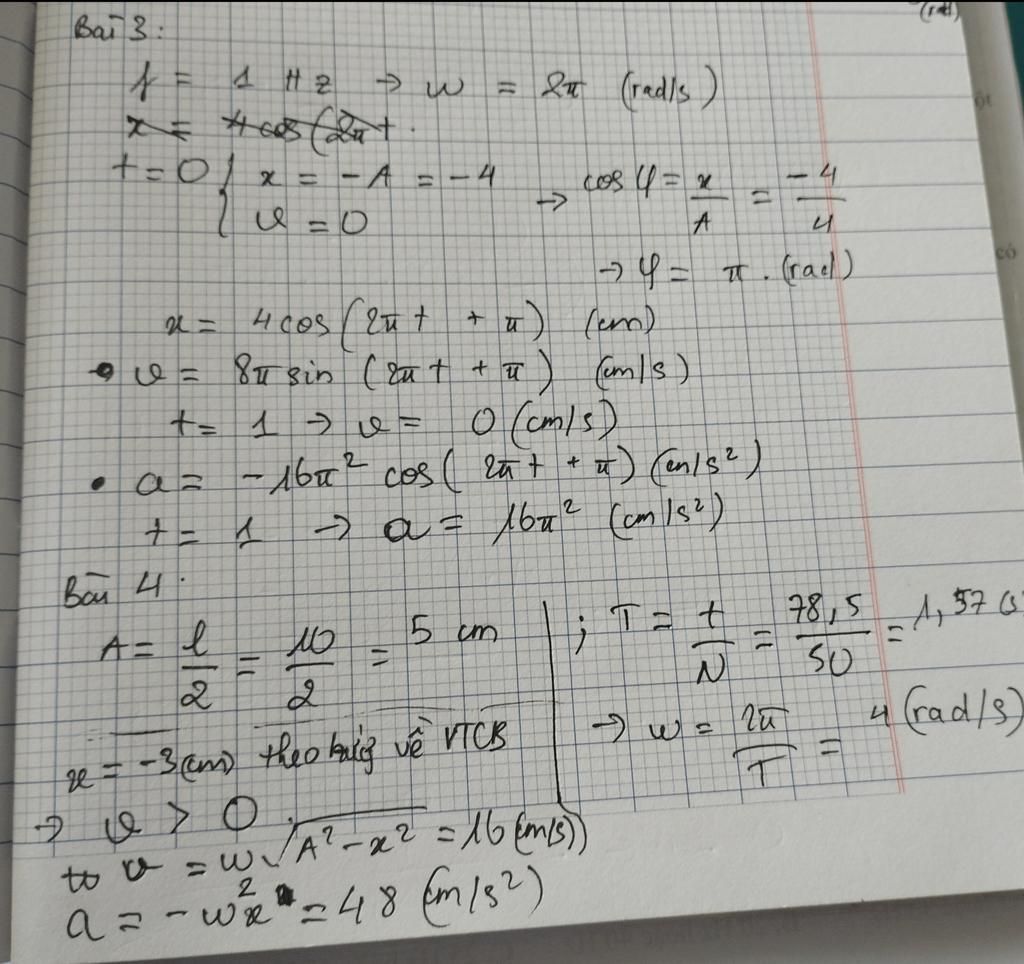 Bài 3:
f = 1 Hz → ω = 2π (rad/s)
x = 4cos(2πt.
t = 0 { x = -A = -4
v = 0
→ cos φ = x/A = -4/4
→ φ = π . (rad)
x = 4cos(2πt + π) (cm)
• v = 8π sin (2πt + π) (cm/s)
t = 1 → v = 0 (cm/s)
• a = -16π² cos( 2πt + π) (cm/s²)
t = 1 → a = 16π² (cm/s²)
Bài 4.
A = l/2 = 10/2 = 5 cm
; T = t/N = 78,5/50 = 1,57 (s
→ ω = 2π/T = 4 (rad/s)
x = -3(cm) theo hướng về VTCB
→ v > 0.
v = ω√A² - x² = 16 (cm/s)
a = -ω²x = 48 (m/s²)
(rad)
có